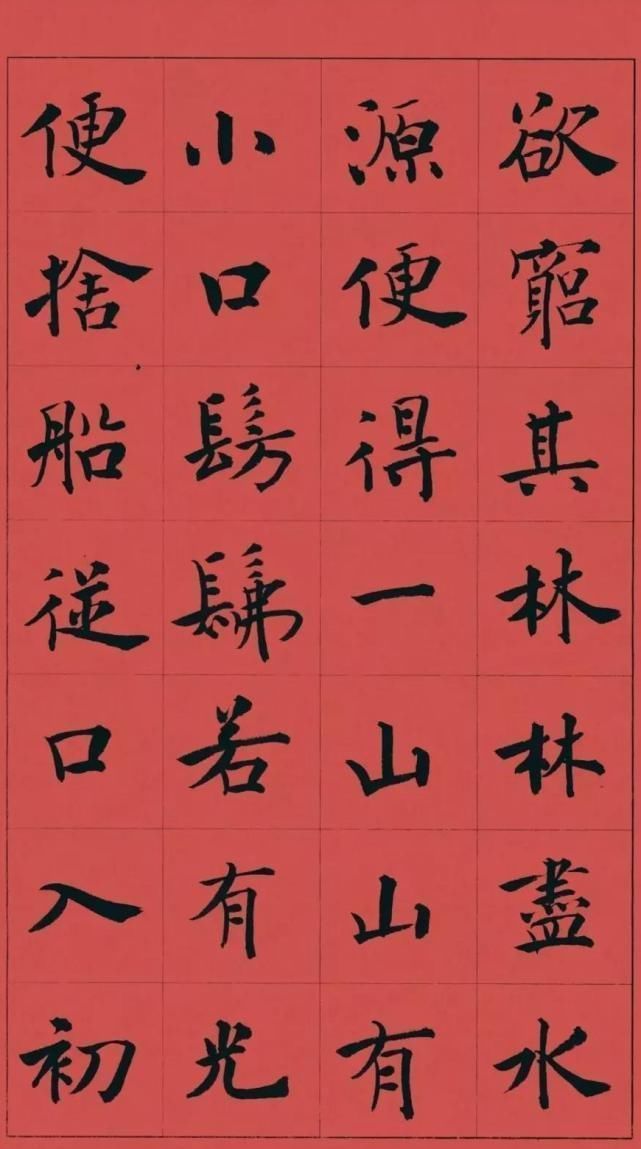 欲窮其林林盡水
源便得一山山有
小口髣髴若有光
便捨船從口入初